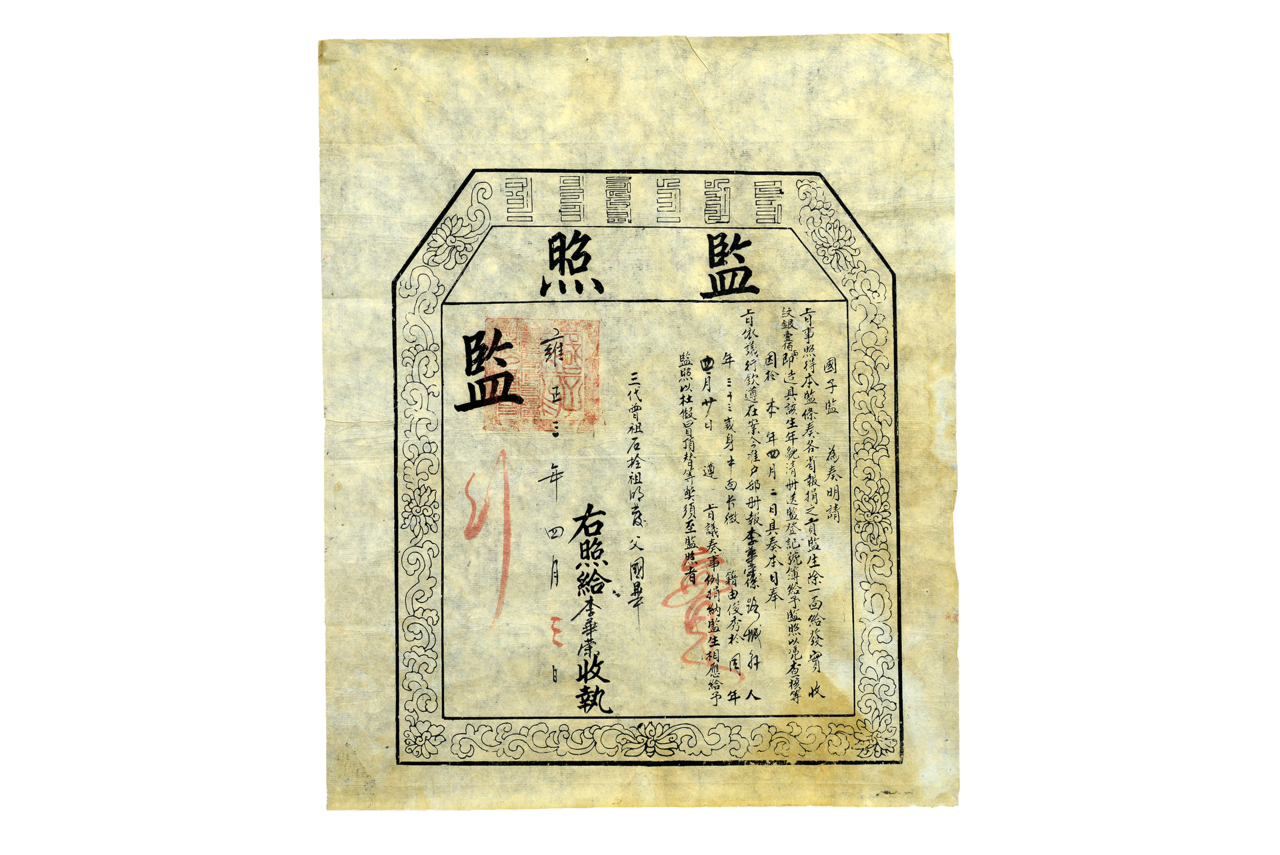 監照
國子監 為奏明請
旨事照得本監條奏各省報捐之貢監生除一面給發實收
紋銀壹佰 即造具該生年貌清冊送監登記號簿給予監照以憑查核等
因於 本 年四月二日具奏本日奉
旨依議行欽遵在案今准户部冊報李華榮係 路 人
年三十三歲身中面 微 籍由俊秀於 年
四月廿日 遵 旨議奏事例捐納監生相應給予
監照以杜假冒頂替等獘須至監照者
三代曾祖石 祖 父國
右照給李華榮收執
雍正三年四月三日
監